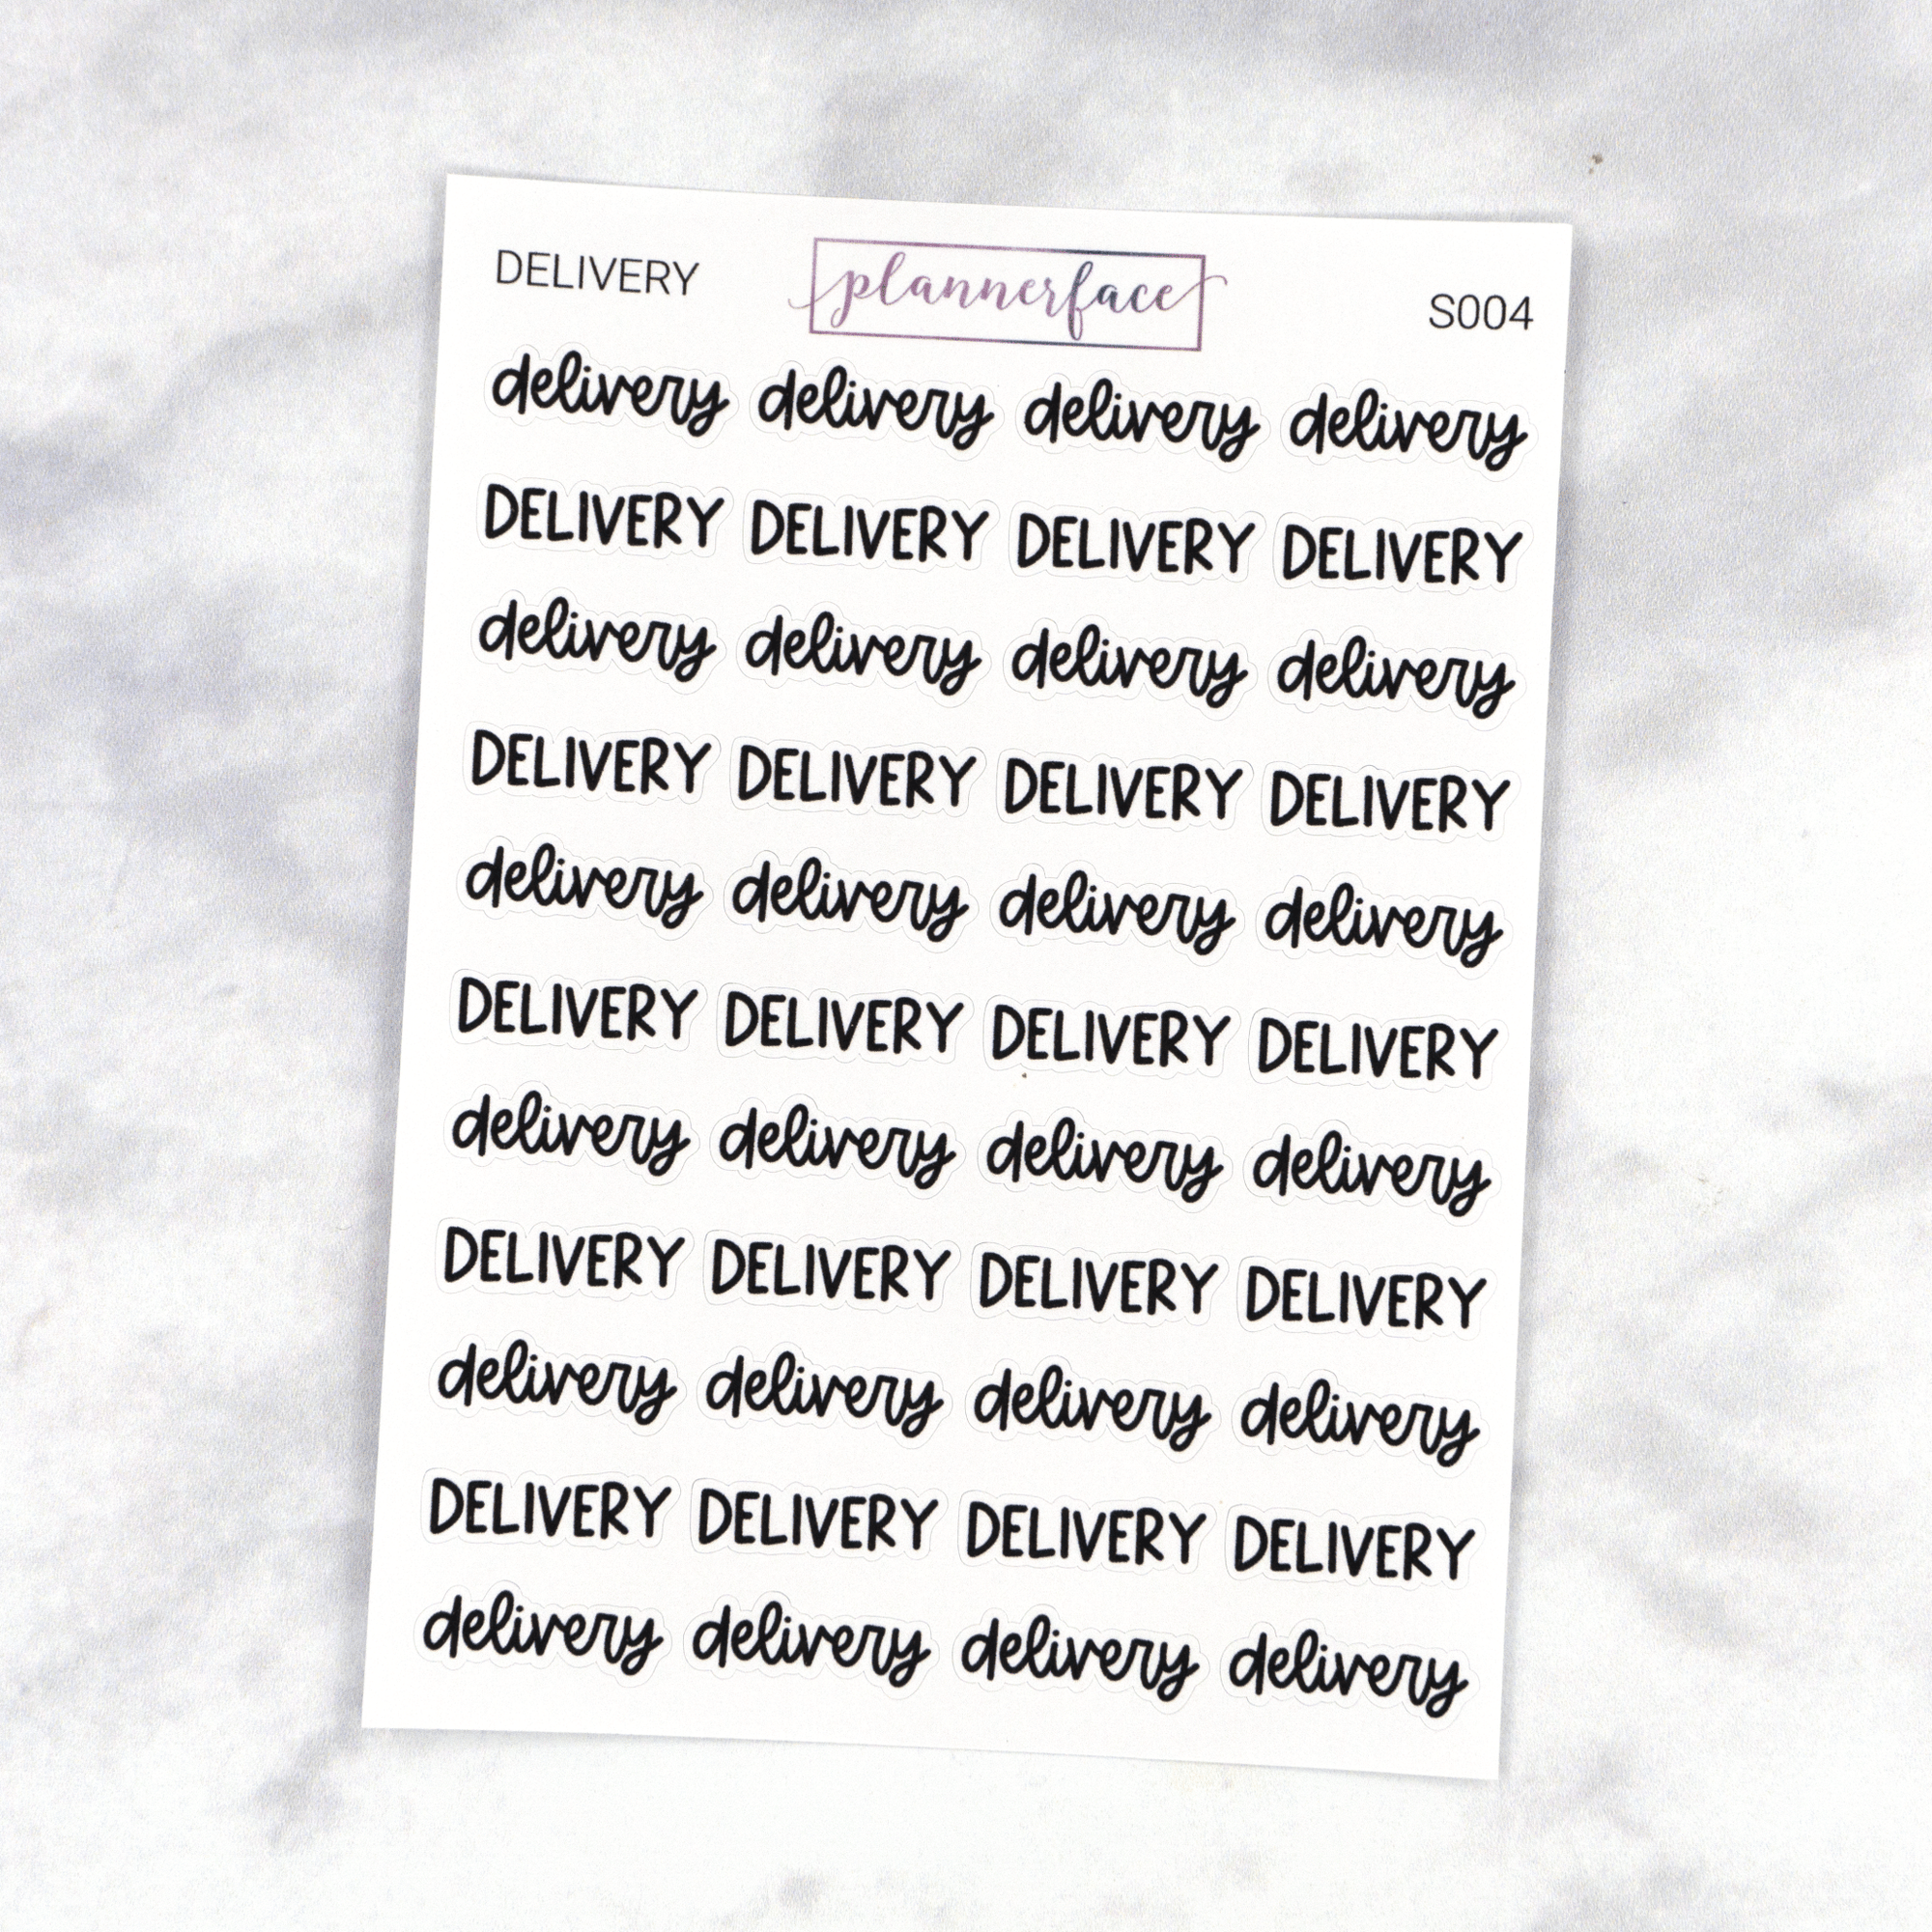 DELIVERY plannerface S004
delivery delivery delivery delivery
DELIVERY DELIVERY DELIVERY DELIVERY
delivery delivery delivery delivery
DELIVERY DELIVERY DELIVERY DELIVERY
delivery delivery delivery delivery
DELIVERY DELIVERY DELIVERY DELIVERY
delivery delivery delivery delivery
DELIVERY DELIVERY DELIVERY DELIVERY
delivery delivery delivery delivery
DELIVERY DELIVERY DELIVERY DELIVERY
delivery delivery delivery delivery